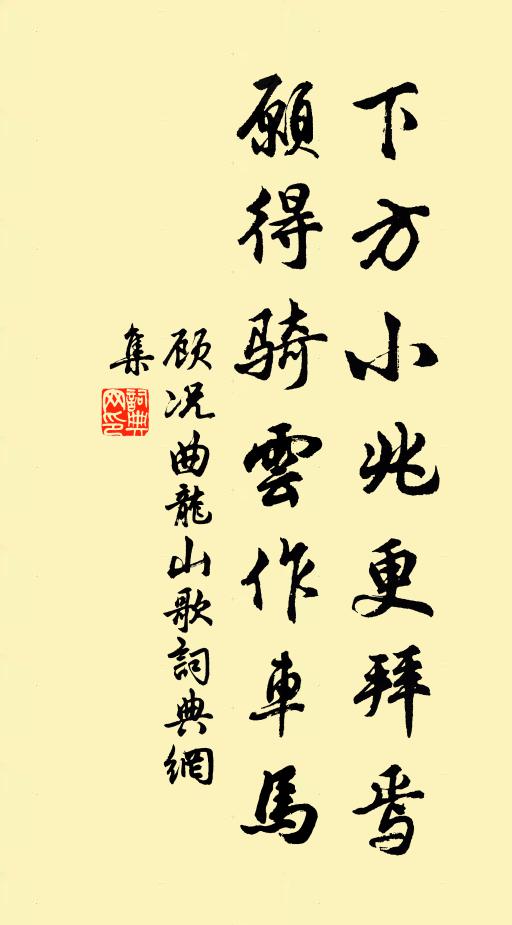 下方小兆更拜焉
願得騎雲作車馬
顧况曲龍山歌詞典網
集
詞典
网印